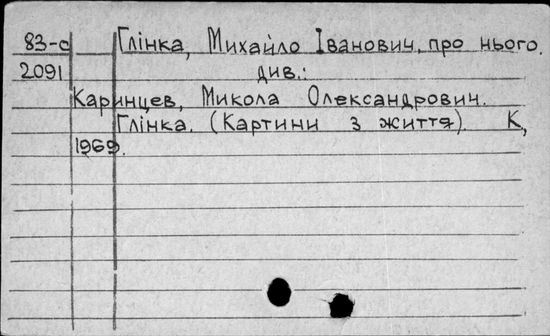 83-с Глінка, Михайло Іванович, про нього.
2091 див.:
Каринцев, Микола Олександрович.
Глінка. (Картини з життя). К,
1969.